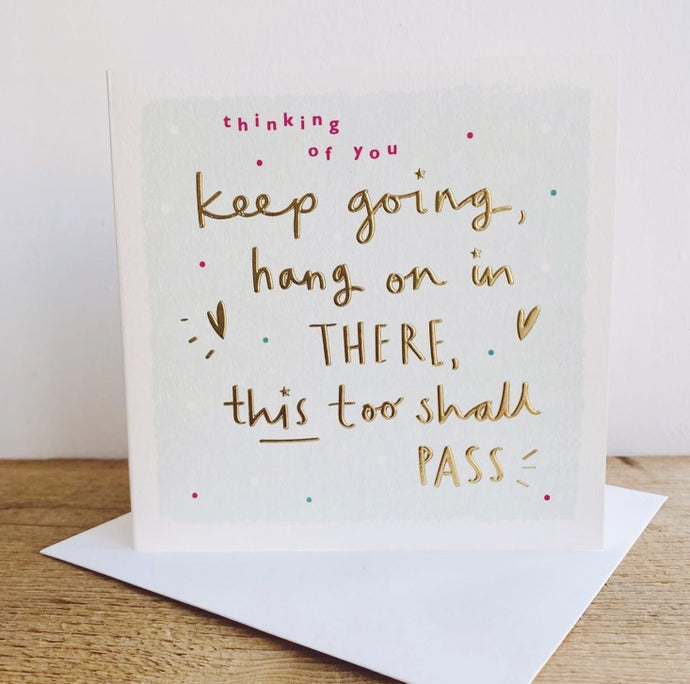 thinking
of you
keep going,
hang on in
THERE,
this too shall
PASS